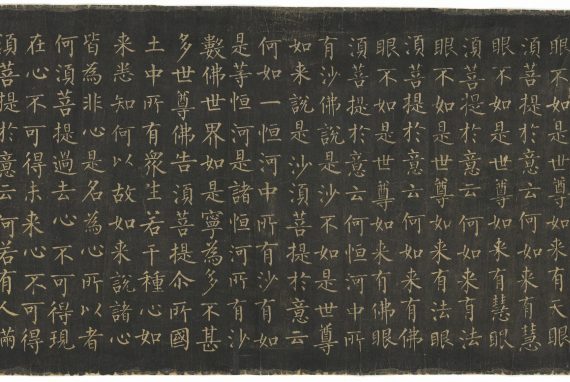 眼不如是世尊如来有天眼
須菩提於意云何如来有慧
眼不如是世尊如来有慧眼
須菩提於意云何如来有法
眼不如是世尊如来有法眼
須菩提於意云何如来有佛
眼不如是世尊如来有佛眼
須菩提於意云何恒河中所
有沙佛說是沙不如是世尊
如来說是沙須菩提於意云
何如一恒河中所有沙有如
是等恒河是諸恒河所有沙
數佛世界如是寧為多不甚
多世尊佛告須菩提尒所國
土中所有眾生若干種心如
来悉知何以故如来說諸心
皆為非心是名為心所以者
何須菩提過去心不可得現
在心不可得未来心不可得
須菩提於意云何若有人滿